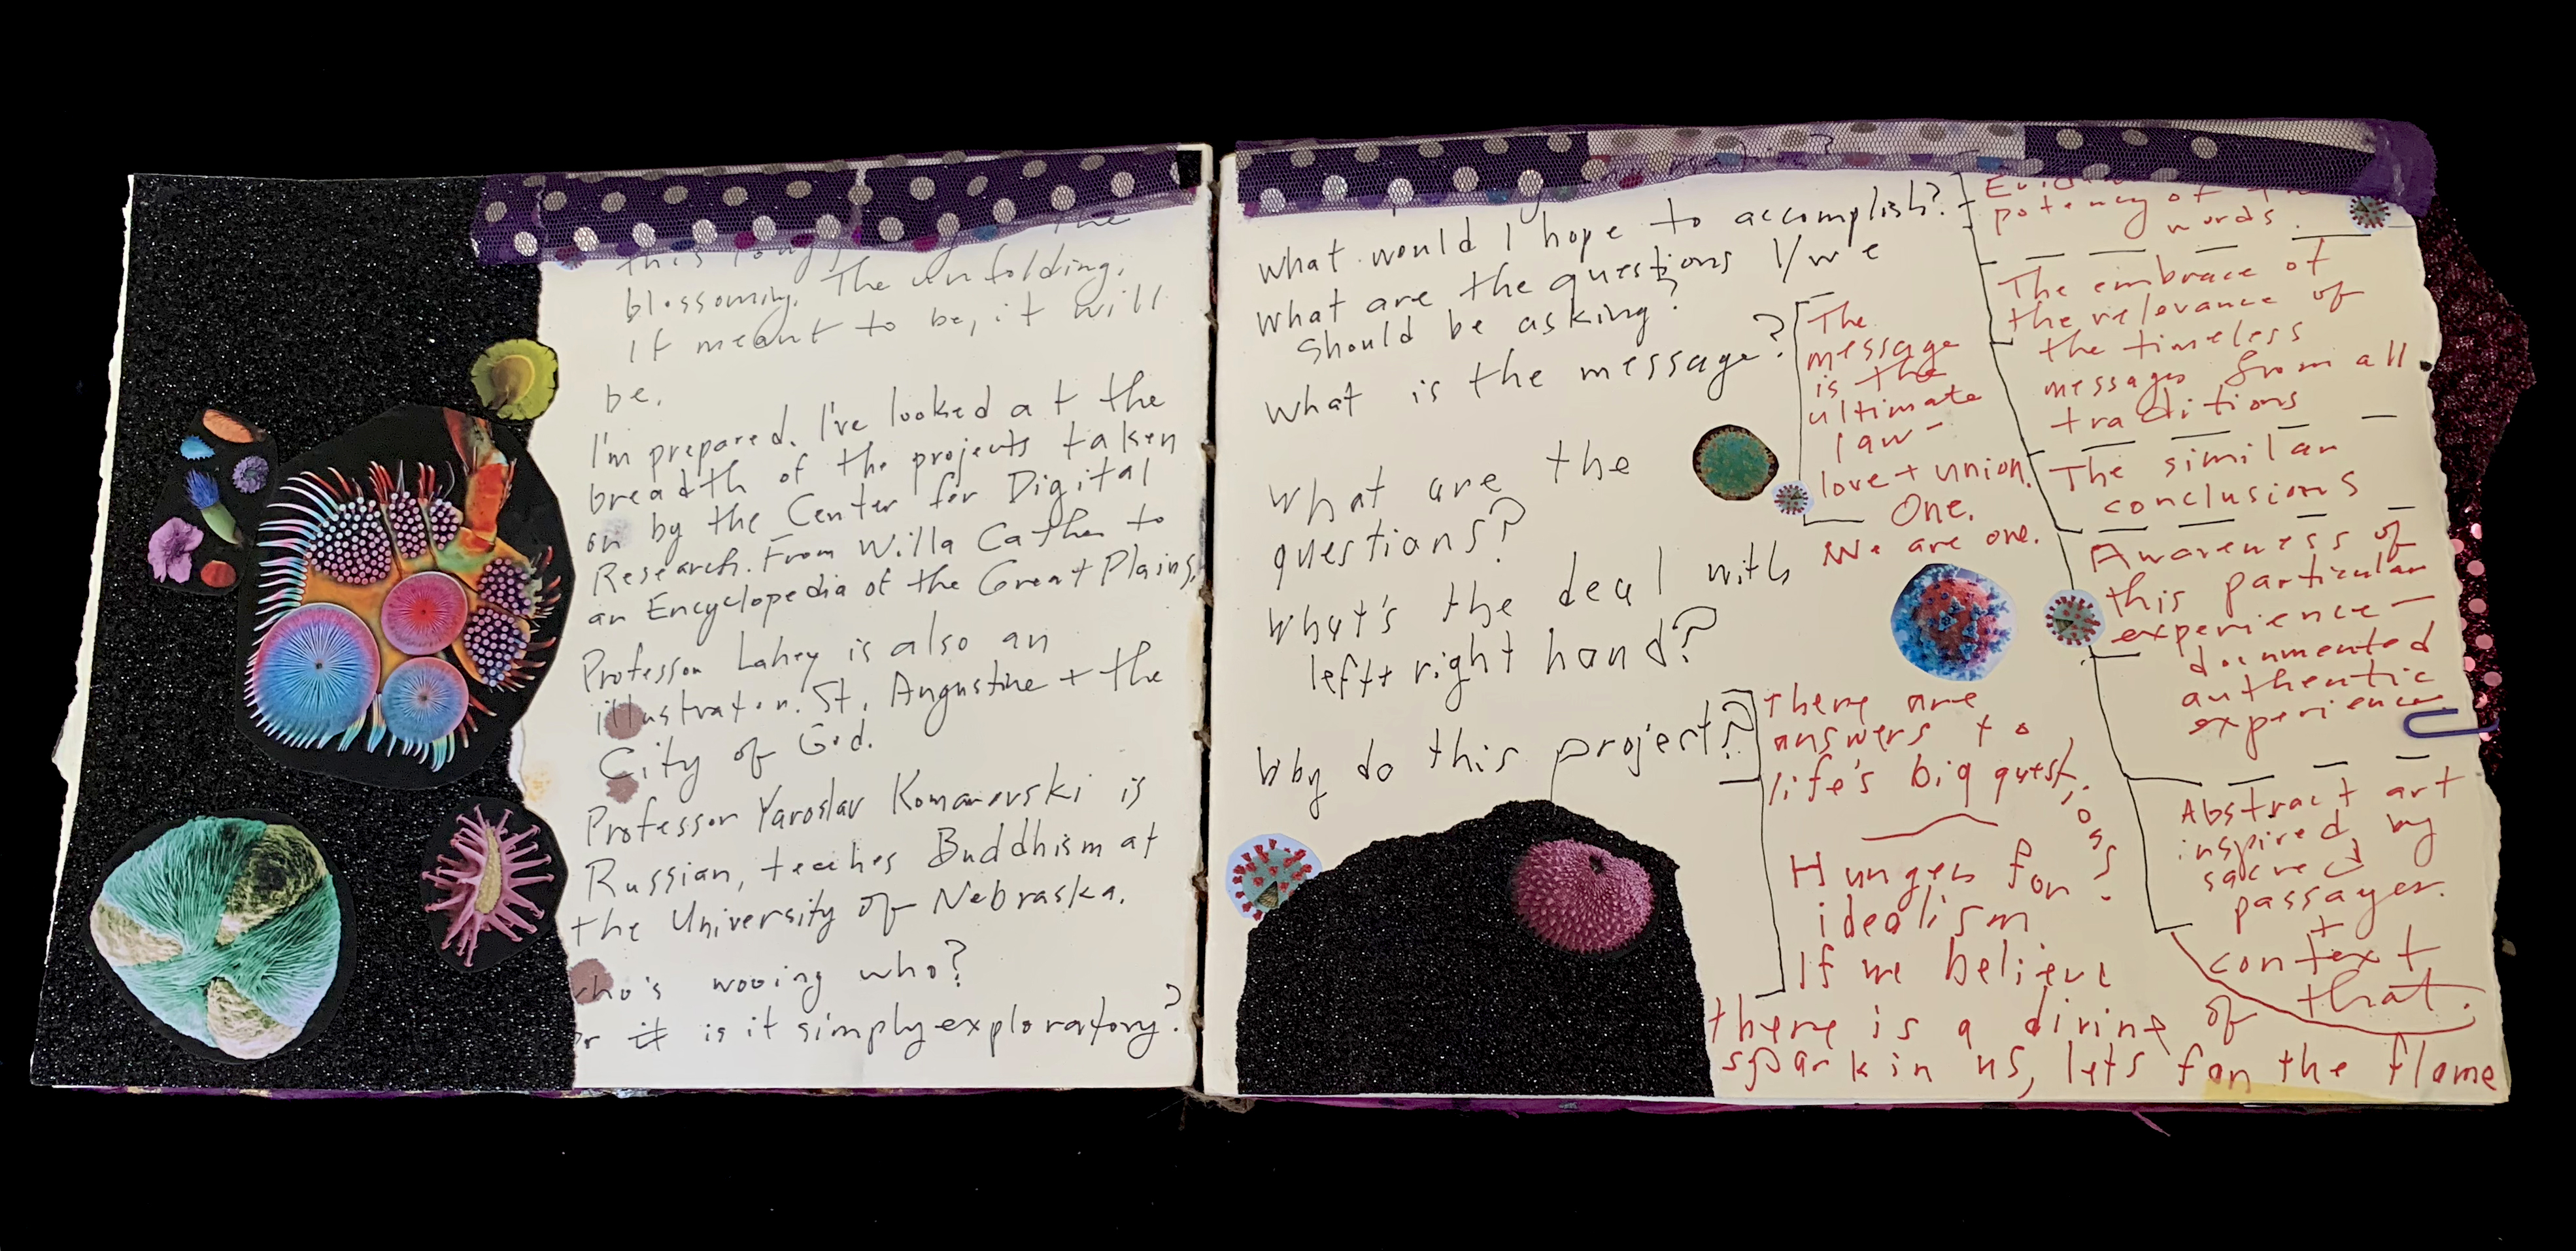 this
blossoming. The unfolding.
If meant to be, it will
be.
I'm prepared. I've looked at the
breadth of the projects taken
on by the Center for Digital
Research. From Willa Cather to
an Encyclopedia of the Great Plains,
Professor Lahey is also an
illustrator. St. Augustine + the
City of God.
Professor Yaroslav Komarovski is
Russian, teaches Buddhism at
the University of Nebraska.
who's wooing who?
or it is it simply exploratory?
what would I hope to accomplish?
what are the questions I/we
should be asking?
what is the message?
what are the
questions?
what's the deal with
left + right hand?
Why do this project?
The
message
is the
ultimate
law -
love + union.
One.
We are one.
there are
answers to
life's big questions?
Hunger for
idealism
If we believe
there is a divine
spark in us, lets fan the flame
potency of
words.
The embrace of
the relevance of
the timeless
messages from all
traditions
The similar
conclusions
Awareness of
this particular
experience —
documented
authentic
experience.
Abstract art
inspired by
sacred
passages.
+
context
of that.